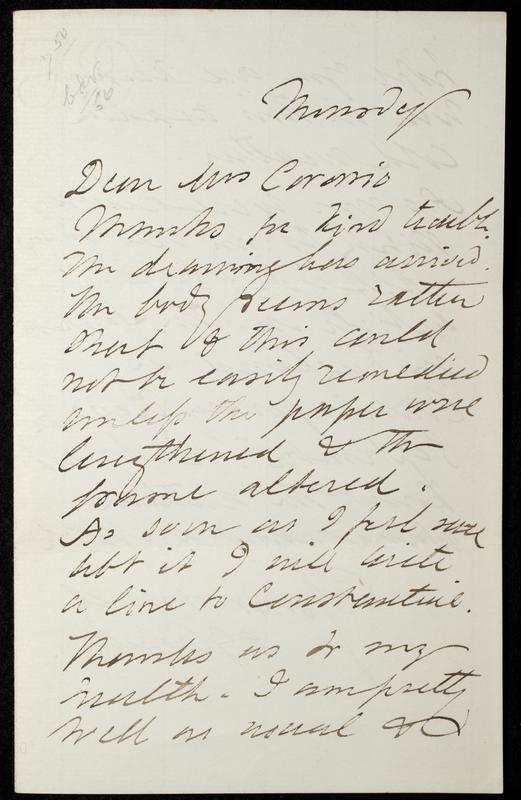 7 50
Monday
Dear Mrs Coronio
Thanks for kind trouble.
The drawing has arrived.
The body seems rather
short & this could
not be easily remedied
unless the paper were
lengthened & the
frame altered.
As soon as I feel sure
abt it I will write
a line to Constantine.
Thanks as to my
health. I am pretty
well as usual &